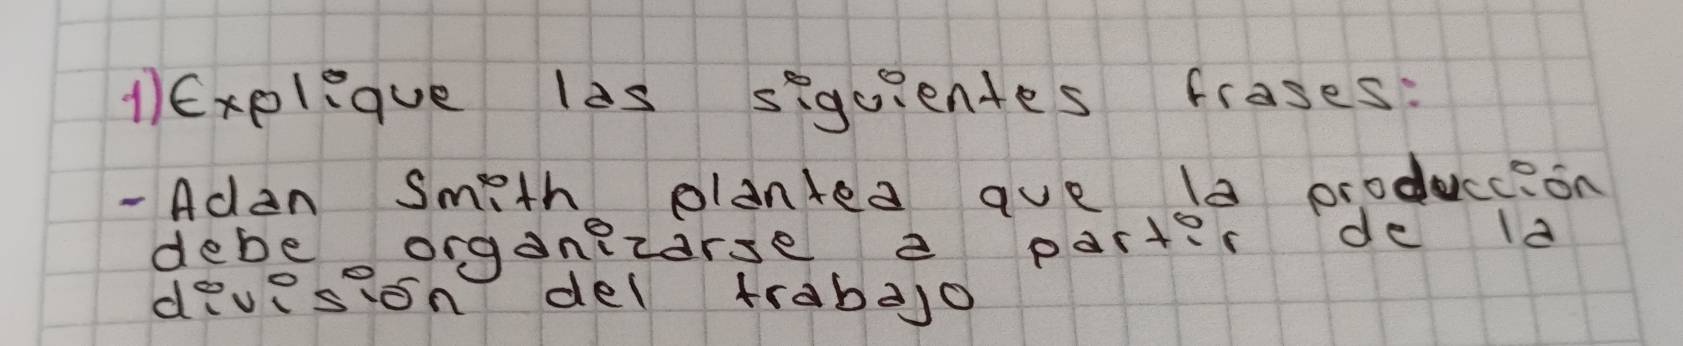 1) Explique las siguientes frases:
- Adan Smith plantea que la producción
debe organizarse a partir de la
división del trabajo